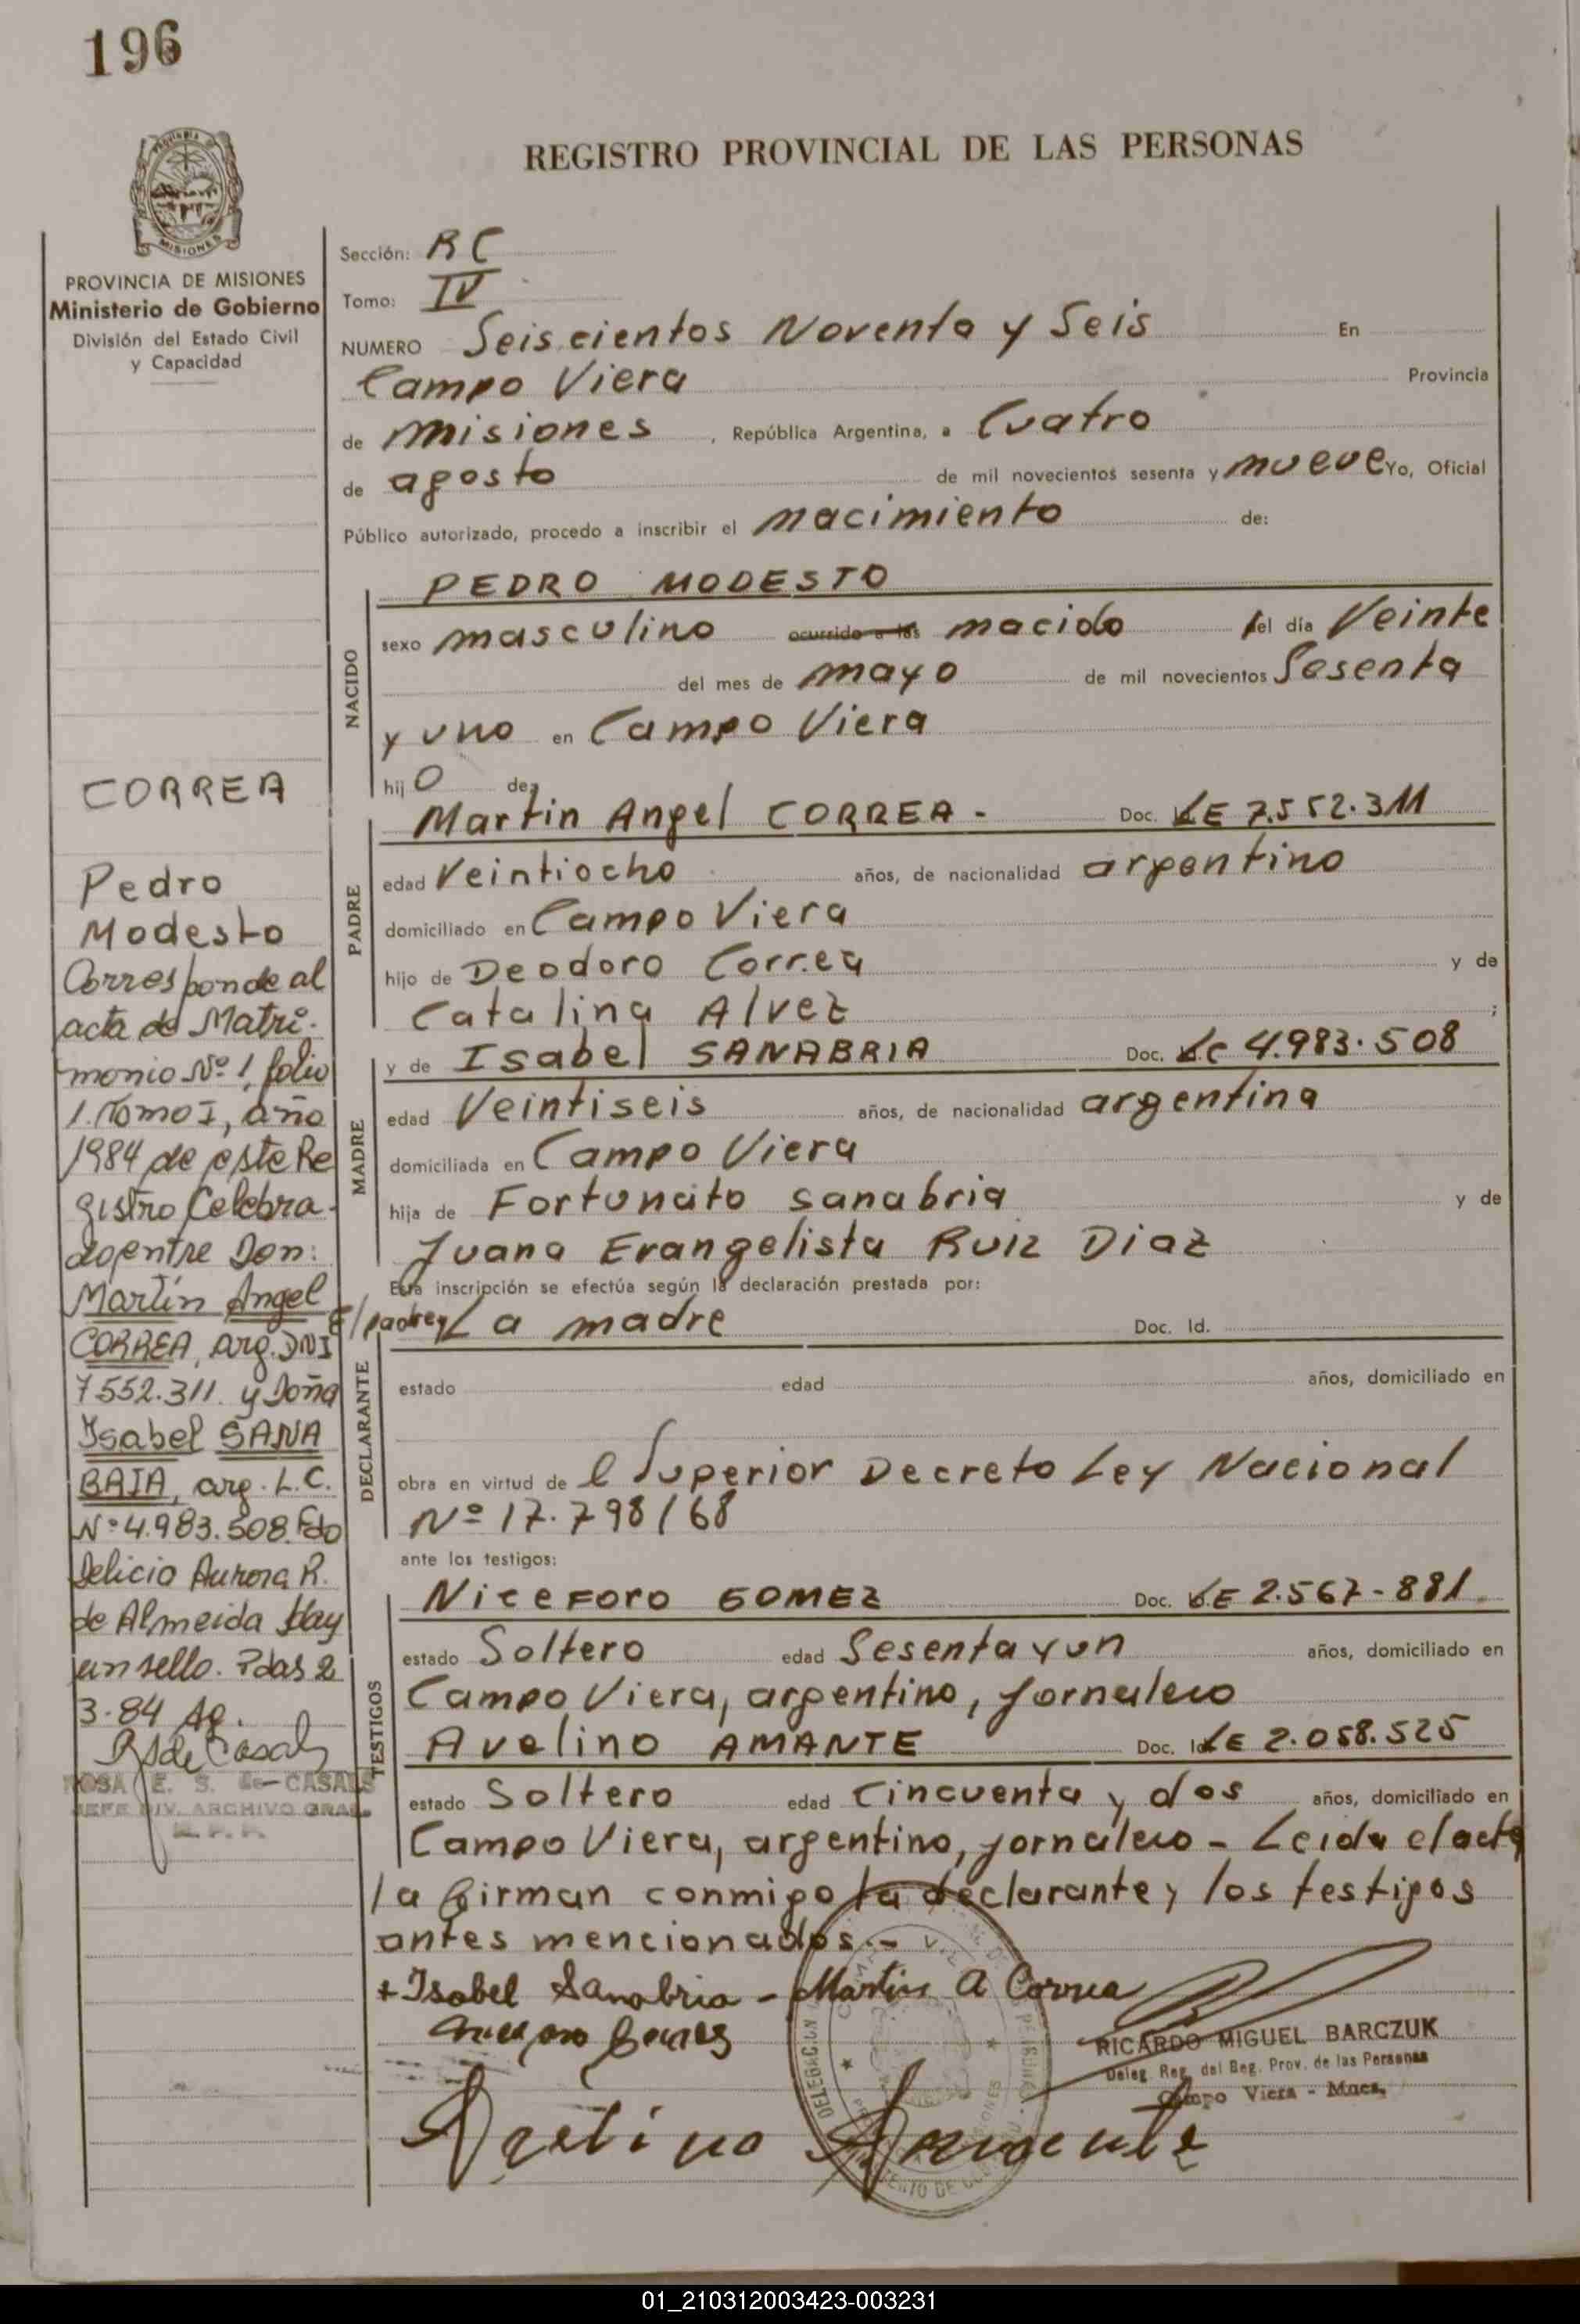 196
REGISTRO PROVINCIAL DE LAS PERSONAS
PROVINCIA DE MISIONES
Ministerio de Gobierno
División del Estado Civil
y Capacidad
Sección: RC
Tomo: IV
NUMERO Seiscientos Noventa y Seis En
Campo Viera Provincia
de misiones , República Argentina, a Cuatro
de agosto de mil novecientos sesenta y nueve Yo, Oficial
Público autorizado, procedo a inscribir el nacimiento de:
NACIDO
PEDRO MODESTO
sexo masculino ocurrido a las nacido el día Veinte
del mes de mayo de mil novecientos Sesenta
y uno en Campo Viera
hijo de
PADRE
Martin Angel CORREA - Doc. LE 7.552.311
edad Veintiocho años, de nacionalidad argentino
domiciliado en Campo Viera
hijo de Deodoro Correa y de
Catalina Alvez ;
MADRE
y de Isabel SANABRIA Doc. LC 4.983.508
edad Veintiseis años, de nacionalidad argentina
domiciliada en Campo Viera
hija de Fortunato Sanabria y de
Juana Evangelista Ruiz Diaz
Esta inscripción se efectúa según la declaración prestada por:
DECLARANTE
El padre y La madre Doc. Id.
estado edad años, domiciliado en
obra en virtud de l Superior Decreto Ley Nacional
Nº 17.798/68
ante los testigos:
TESTIGOS
Niceforo GOMEZ Doc. LE 2.567-881
estado Soltero edad Sesenta y un años, domiciliado en
Campo Viera, argentino, jornalero
Avelino AMANTE Doc. Id. LE 2.058.525
estado Soltero edad Cincuenta y dos años, domiciliado en
Campo Viera, argentino, jornalero - Leida el acta
la firman conmigo la declarante y los testigos
antes mencionados.-
+ Isabel Sanabria - Martin A Correa
Avelino Amante
RICARDO MIGUEL BARCZUK
Deleg. Reg. del Reg. Prov. de las Personas
Campo Viera - Mnes.
CORREA
Pedro
Modesto
Corresponde al
acta de Matri-
monio Nº 1, folio
1. Tomo I, año
1984 de este Re
gistro Celebra-
do entre Don:
Martín Angel
CORREA, arg. DNI
7552.311. y Doña
Isabel SANA
BRIA, arg. L.C.
Nº 4.983.508. Fdo
Delicia Aurora R.
de Almeida Hay
un sello. Pdas 2
3-84 Ag.
ROSA E. S. de CASALS
JEFE DIV. ARCHIVO GRAL.
R. P. P.
01_210312003423-003231